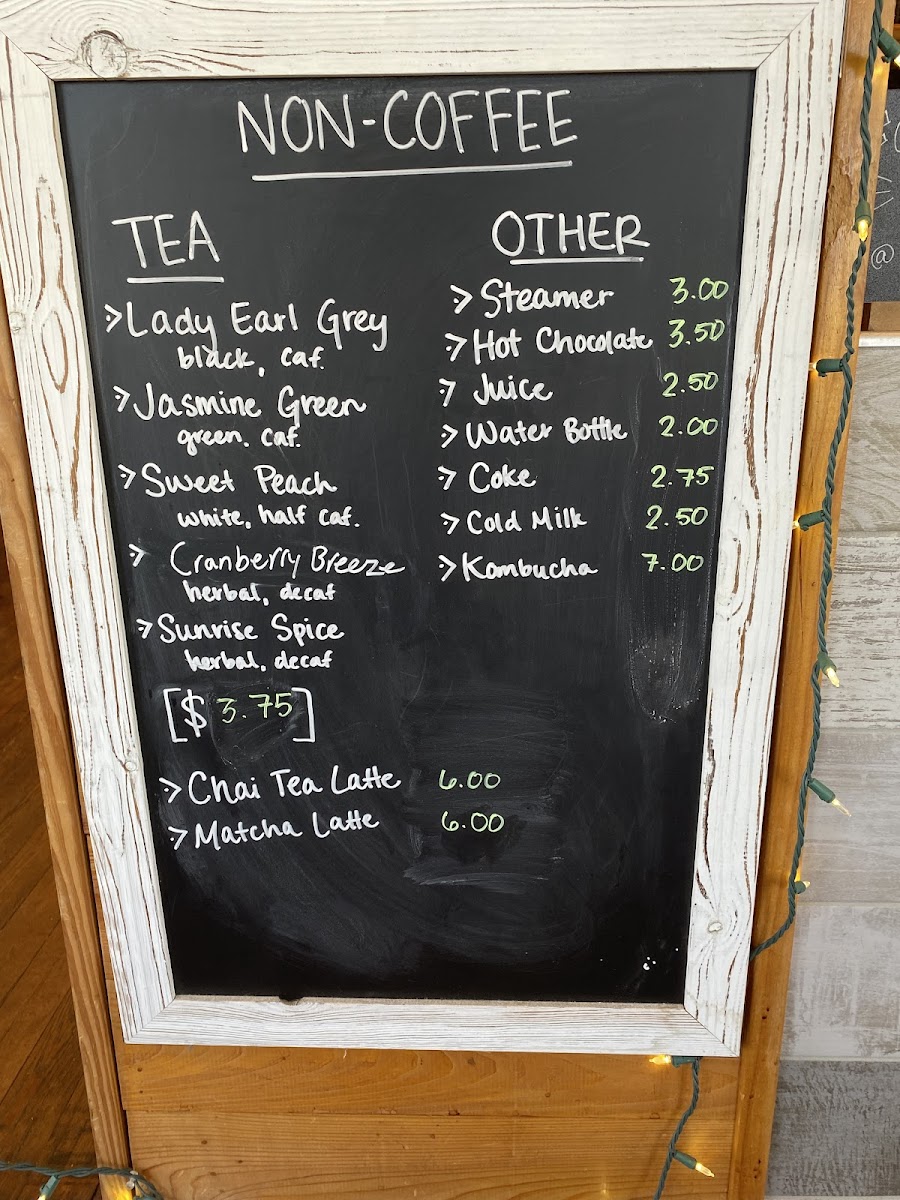 NON-COFFEE
TEA
> Lady Earl Grey
black, caf.
> Jasmine Green
green. caf.
> Sweet Peach
white, half caf.
> Cranberry Breeze
herbal, decaf
> Sunrise Spice
herbal, decaf
[$ 3.75]
> Chai Tea Latte 6.00
> Matcha Latte 6.00
OTHER
> Steamer 3.00
> Hot Chocolate 3.50
> Juice 2.50
> Water Bottle 2.00
> Coke 2.75
> Cold Milk 2.50
> Kombucha 7.00
@